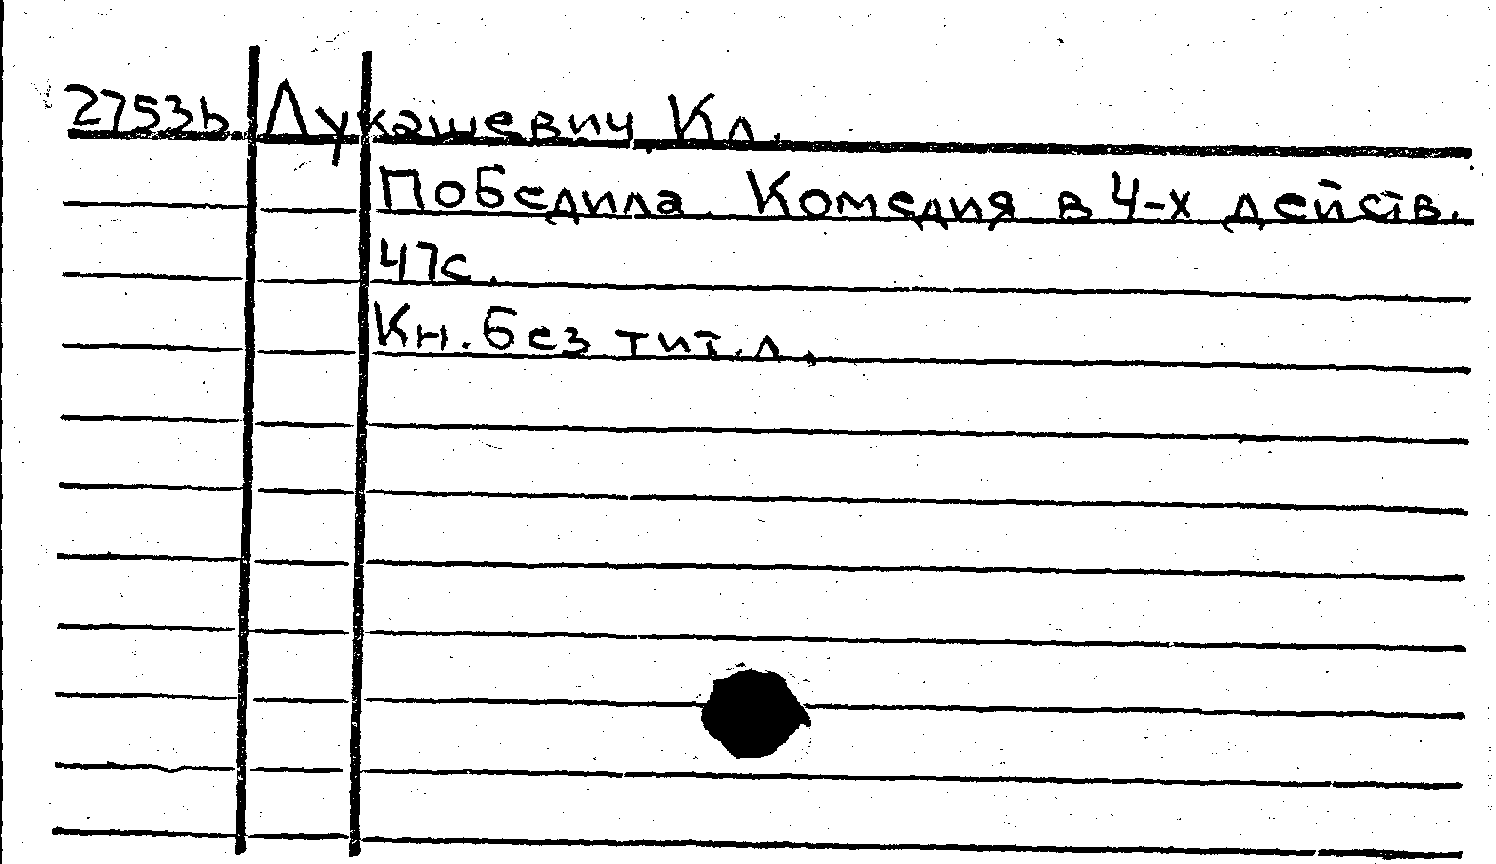 2753b Лукашевич Кл.
Победила. Комедия в 4-х действ.
47с.
Кн. без тит. л.